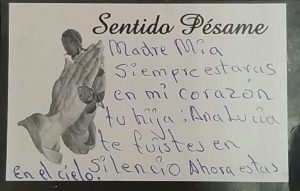 Sentido Pésame
Madre Mia
Siempre estaras
en mi corazón
tu hija: Ana Lucia
te fuistes en
Silencio Ahora estas
En el cielo.